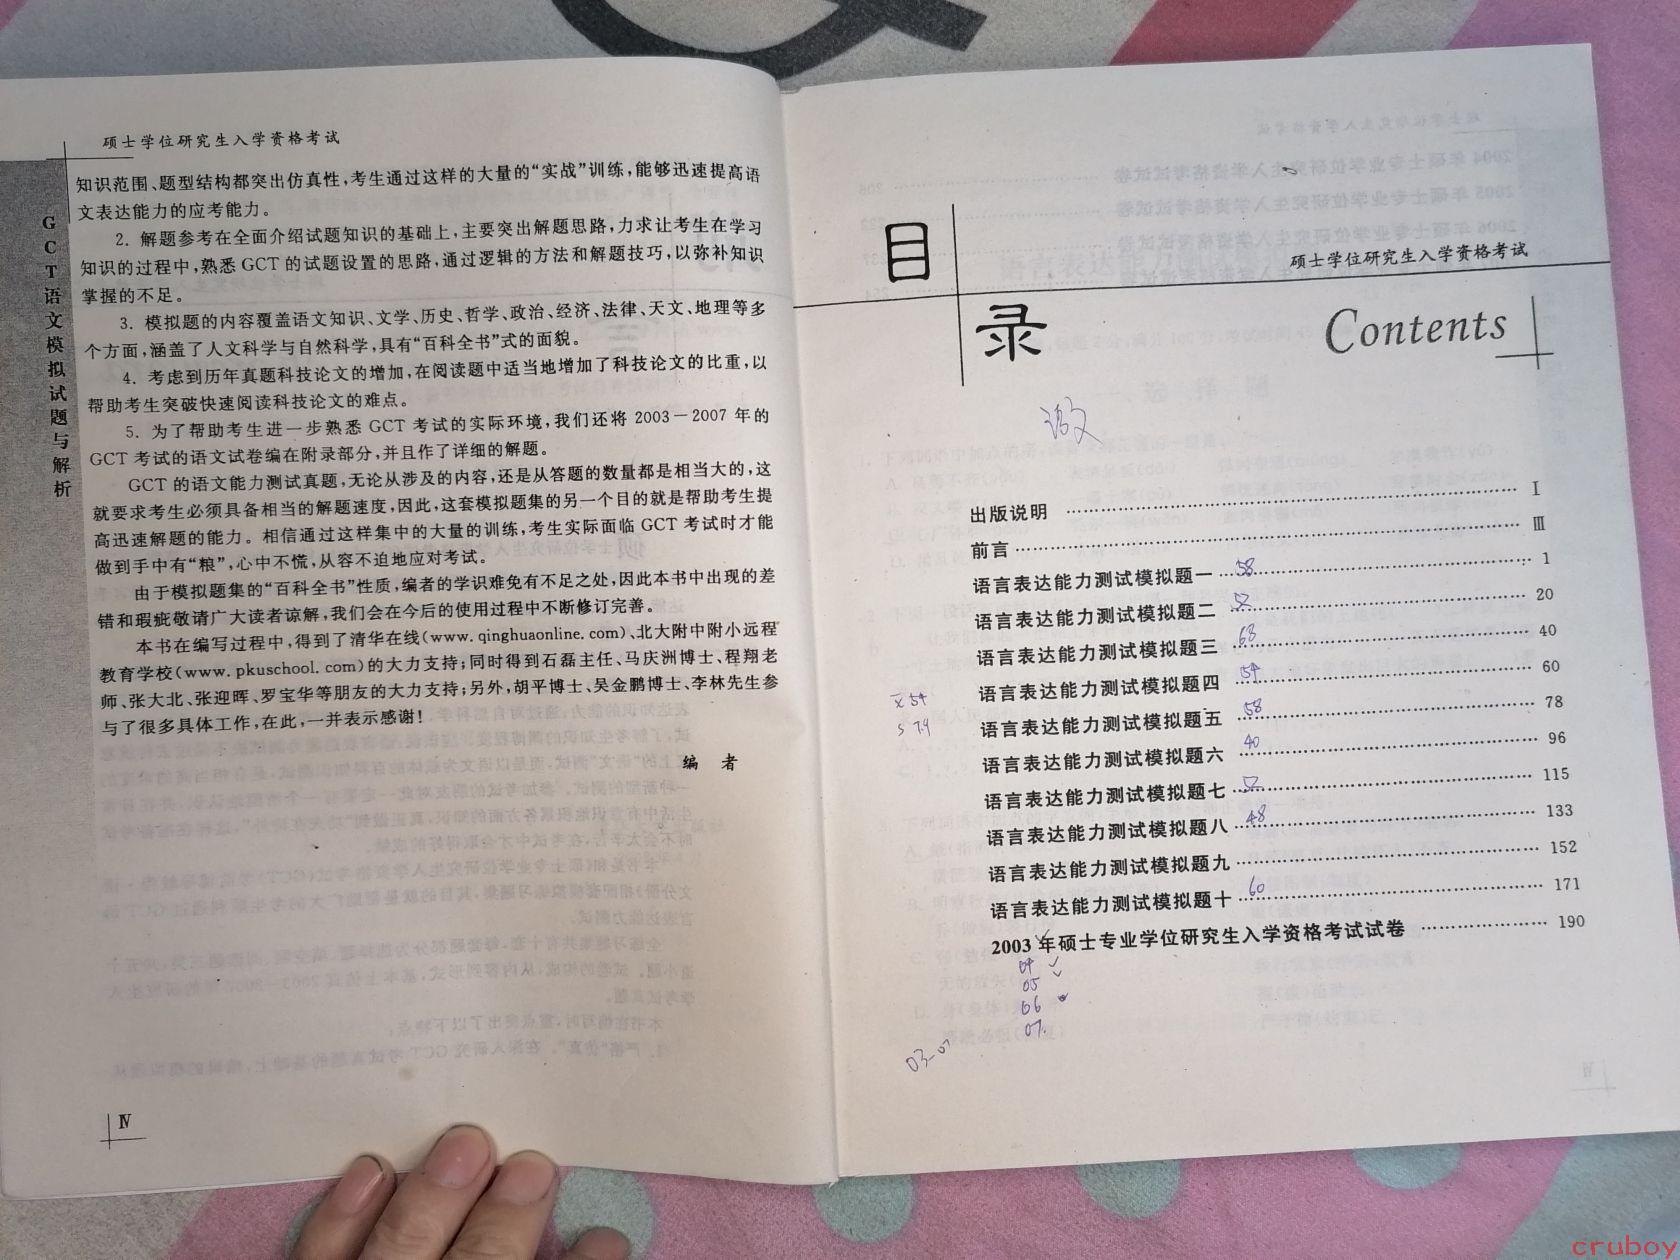 硕士学位研究生入学资格考试
GCT语文模拟试题与解析
知识范围、题型结构都突出仿真性,考生通过这样的大量的“实战”训练,能够迅速提高语
文表达能力的应考能力。
2. 解题参考在全面介绍试题知识的基础上,主要突出解题思路,力求让考生在学习
知识的过程中,熟悉 GCT 的试题设置的思路,通过逻辑的方法和解题技巧,以弥补知识
掌握的不足。
3. 模拟题的内容覆盖语文知识、文学、历史、哲学、政治、经济、法律、天文、地理等多
个方面,涵盖了人文科学与自然科学,具有“百科全书”式的面貌。
4. 考虑到历年真题科技论文的增加,在阅读题中适当地增加了科技论文的比重,以
帮助考生突破快速阅读科技论文的难点。
5. 为了帮助考生进一步熟悉 GCT 考试的实际环境,我们还将 2003－2007 年的
GCT 考试的语文试卷编在附录部分,并且作了详细的解题。
GCT 的语文能力测试真题,无论从涉及的内容,还是从答题的数量都是相当大的,这
就要求考生必须具备相当的解题速度,因此,这套模拟题集的另一个目的就是帮助考生提
高迅速解题的能力。相信通过这样集中的大量的训练,考生实际面临 GCT 考试时才能
做到手中有“粮”,心中不慌,从容不迫地应对考试。
由于模拟题集的“百科全书”性质,编者的学识难免有不足之处,因此本书中出现的差
错和瑕疵敬请广大读者谅解,我们会在今后的使用过程中不断修订完善。
本书在编写过程中,得到了清华在线(www.qinghuaonline.com)、北大附中附小远程
教育学校(www.pkuschool.com)的大力支持;同时得到石磊主任、马庆洲博士、程翔老
师、张大北、张迎晖、罗宝华等朋友的大力支持;另外,胡平博士、吴金鹏博士、李林先生参
与了很多具体工作,在此,一并表示感谢!
编 者
Ⅳ
目录
硕士学位研究生入学资格考试
Contents
语文
出版说明 …… Ⅰ
前言 …… Ⅲ
语言表达能力测试模拟题一 …58… 1
语言表达能力测试模拟题二 …52… 20
语言表达能力测试模拟题三 …68… 40
语言表达能力测试模拟题四 …54… 60
语言表达能力测试模拟题五 …58… 78
语言表达能力测试模拟题六 …40… 96
语言表达能力测试模拟题七 …52… 115
语言表达能力测试模拟题八 …48… 133
语言表达能力测试模拟题九 …… 152
语言表达能力测试模拟题十 …60… 171
2003 年硕士专业学位研究生入学资格考试试卷 …… 190
x̄ 54
s 7.9
04 ✓
05 ✓
06
07
03-07
cruboy